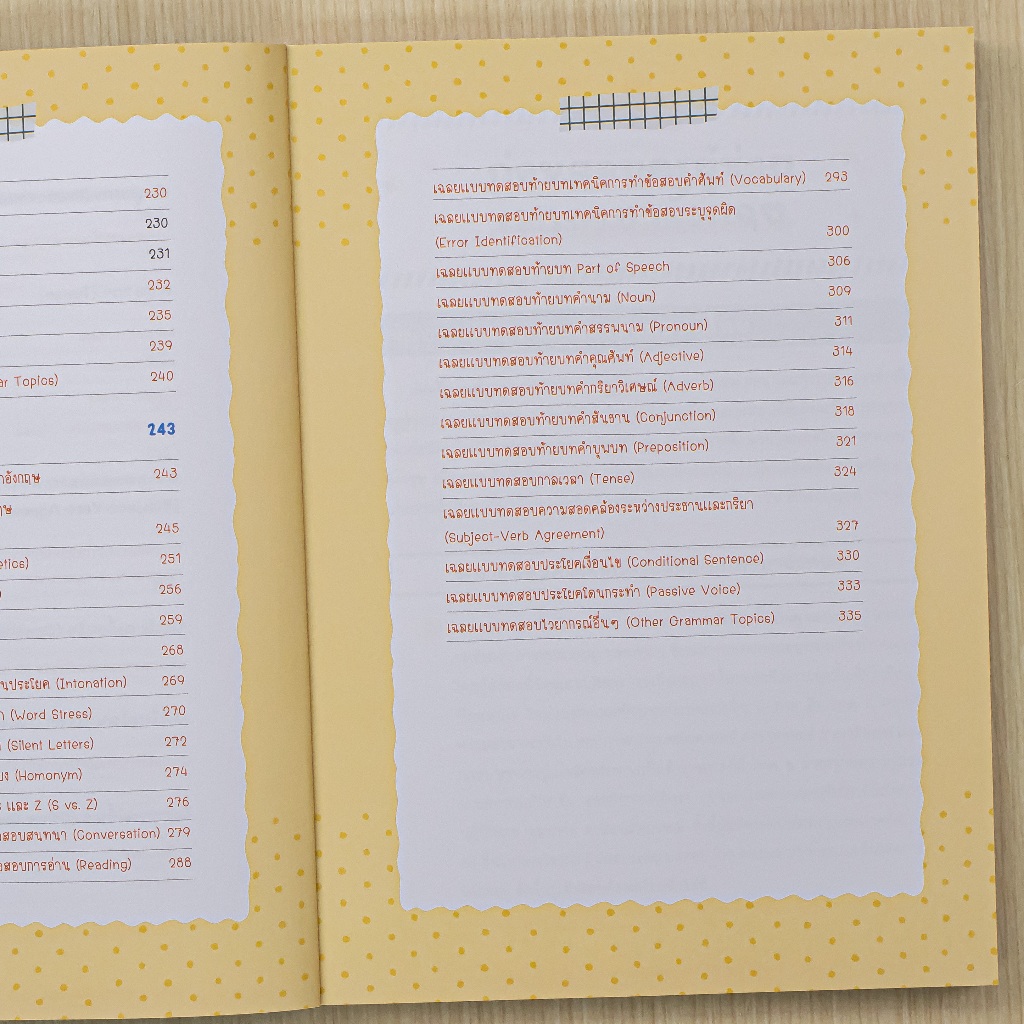 230
230
231
232
235
239
Topics) 240
243
243
245
251
256
259
268
(Intonation) 269
(Word Stress) 270
(Silent Letters) 272
(Homonym) 274
และ Z (S vs. Z) 276
(Conversation) 279
(Reading) 288
เฉลยแบบทดสอบท้ายบทเทคนิคการทำข้อสอบคำศัพท์ (Vocabulary) 293
เฉลยแบบทดสอบท้ายบทเทคนิคการทำข้อสอบระบุจุดผิด
(Error Identification) 300
เฉลยแบบทดสอบท้ายบท Part of Speech 306
เฉลยแบบทดสอบท้ายบทคำนาม (Noun) 309
เฉลยแบบทดสอบท้ายบทคำสรรพนาม (Pronoun) 311
เฉลยแบบทดสอบท้ายบทคำคุณศัพท์ (Adjective) 314
เฉลยแบบทดสอบท้ายบทคำกริยาวิเศษณ์ (Adverb) 316
เฉลยแบบทดสอบท้ายบทคำสันธาน (Conjunction) 318
เฉลยแบบทดสอบท้ายบทคำบุพบท (Preposition) 321
เฉลยแบบทดสอบกาลเวลา (Tense) 324
เฉลยแบบทดสอบความสอดคล้องระหว่างประธานและกริยา
(Subject-Verb Agreement) 327
เฉลยแบบทดสอบประโยคเงื่อนไข (Conditional Sentence) 330
เฉลยแบบทดสอบประโยคโดนกระทำ (Passive Voice) 333
เฉลยแบบทดสอบไวยากรณ์อื่นๆ (Other Grammar Topics) 335